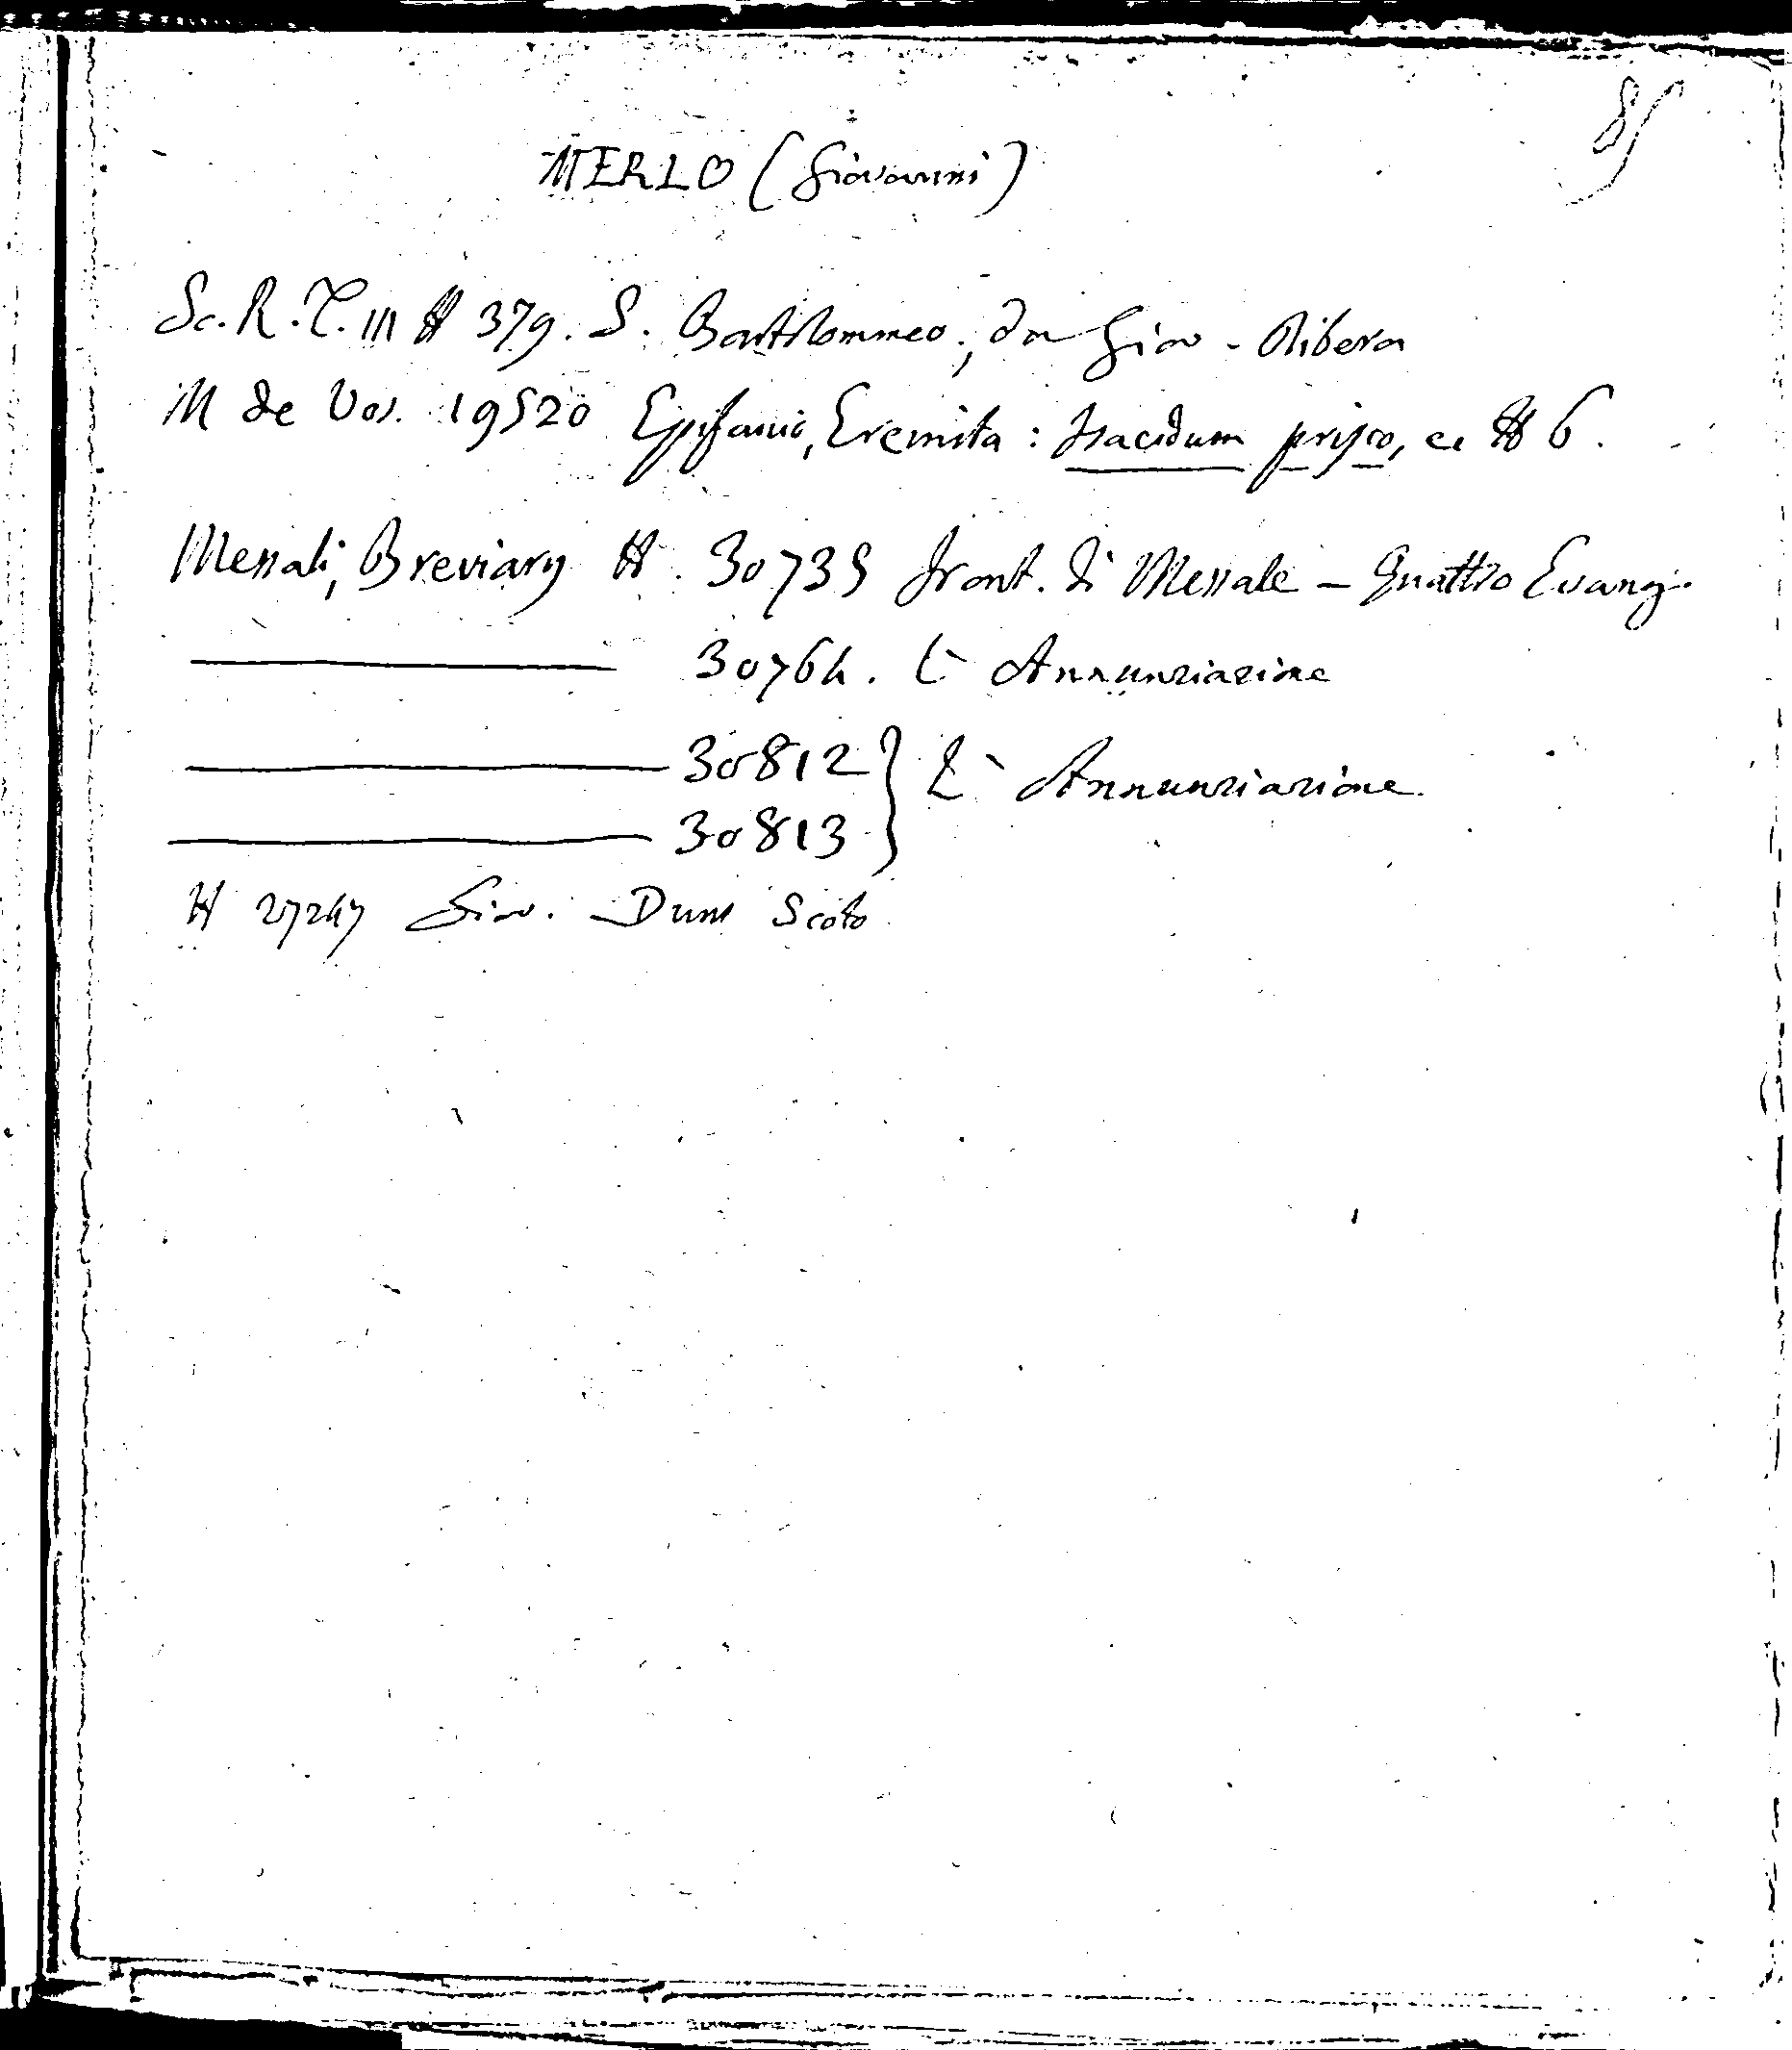 85
MERLO (Giovanni)
Sc. R. T. III # 379. S. Bartolommeo, da Giov. Ribera
M de Vos. 19520 Epifanio, Eremita: prisco, ec # 6.
Messali, Breviary # 30735 front. di Messale - Quattro Evang.
30764. L' Annunziazione
30812 } L' Annunziazione
30813
# 27247 Giov. Duns Scoto